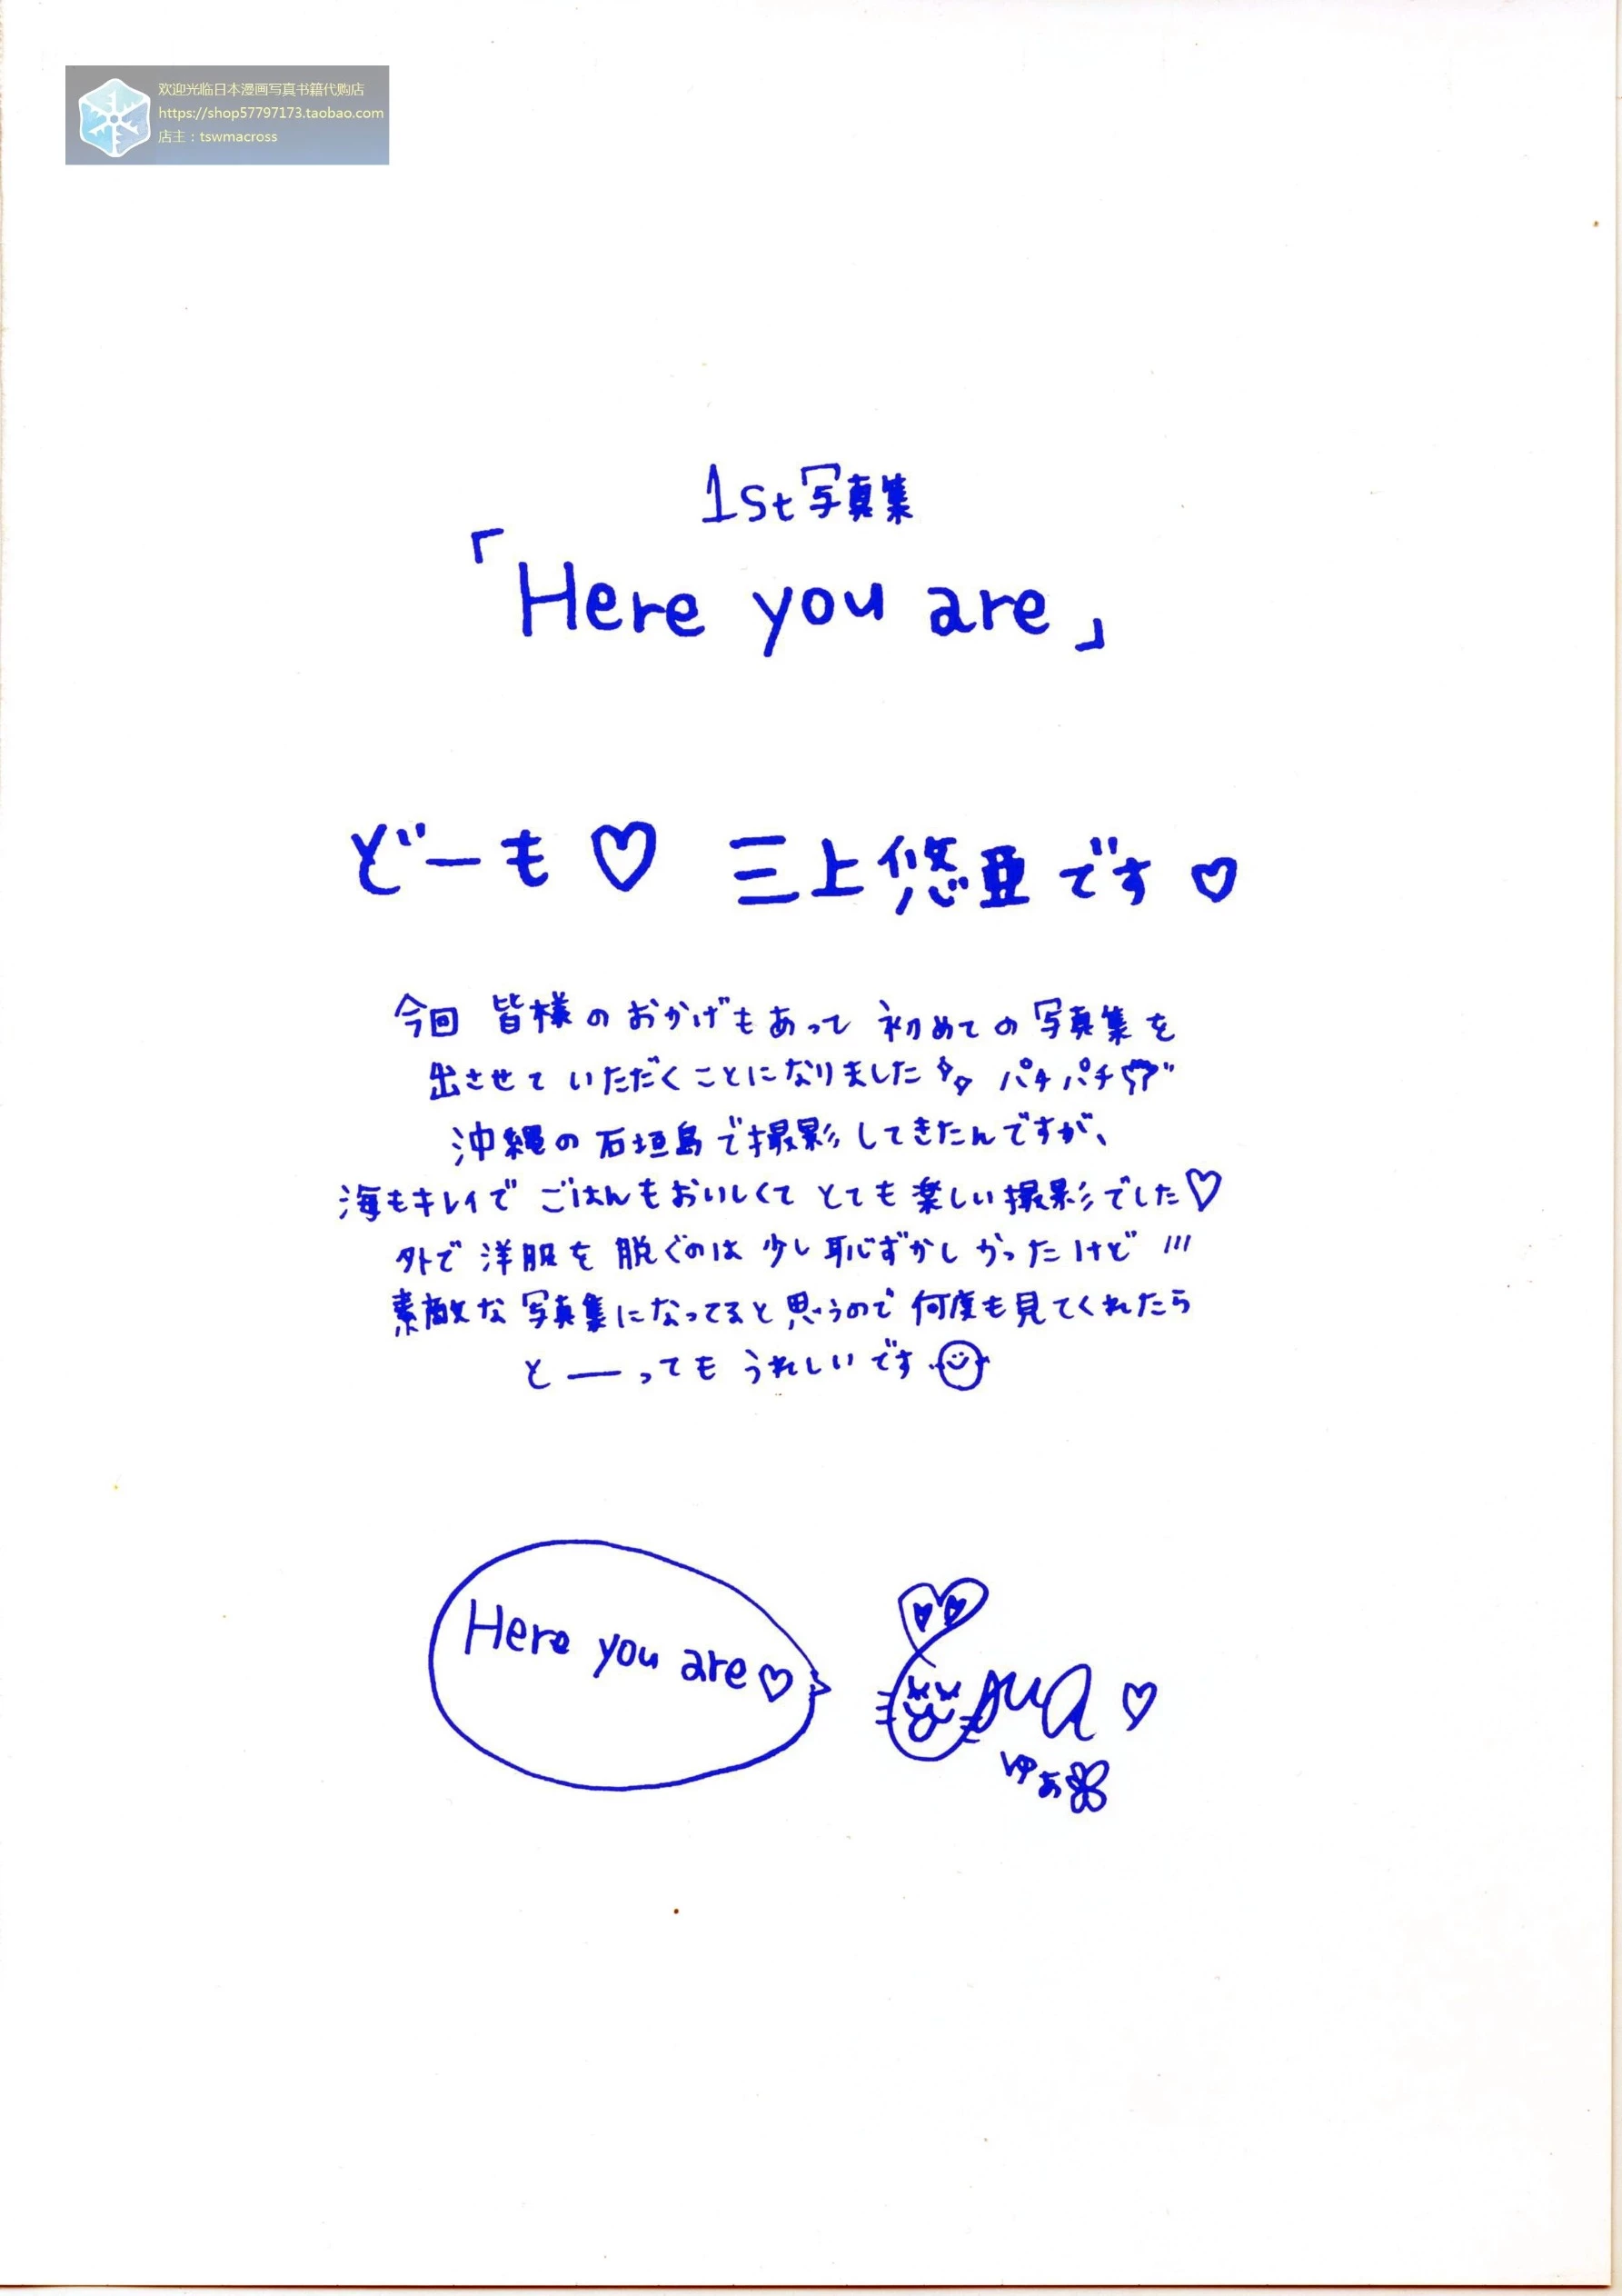 欢迎光临日本漫画写真书籍代购店
https://shop57797173.taobao.com
店主：tswmacross
1st写真集
「Here you are」
どーも♡ 三上悠亜です♡
今回 皆様のおかげもあって 初めての写真集を
出させていただくことになりました パチパチ
沖縄の石垣島で撮影してきたんですが、
海もキレイで ごはんもおいしくて とても楽しい撮影でした♡
外で洋服を脱ぐのは少し恥ずかしかったけど
素敵な写真集になってると思うので 何度も見てくれたら
とーーってもうれしいです
Here you are♡
yua♡
ゆあ